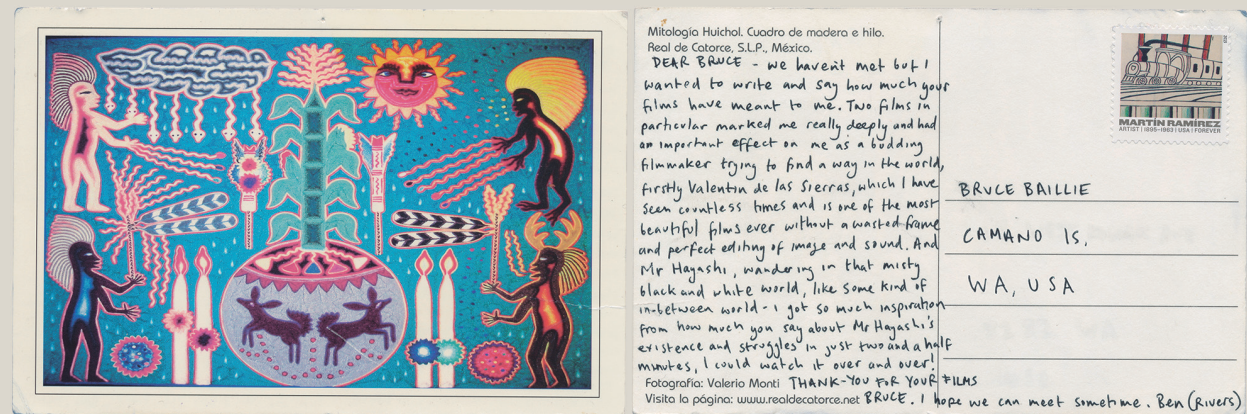 Mitología Huichol. Cuadro de madera e hilo.
Real de Catorce, S.L.P., México.
DEAR BRUCE - we haven't met but I
wanted to write and say how much your
films have meant to me. Two films in
particular marked me really deeply and had
an important effect on me as a budding
filmmaker trying to find a way in the world,
firstly Valentin de las Sierras, which I have
seen countless times and is one of the most
beautiful films ever without a wasted frame
and perfect editing of image and sound. And
Mr Hayashi, wandering in that misty
black and white world, like some kind of
in-between world - i got so much inspiration
from how much you say about Mr Hayashi's
existence and struggles in just two and a half
minutes, I could watch it over and over!
Fotografía: Valerio Monti THANK-YOU FOR YOUR FILMS
Visita la página: www.realdecatorce.net BRUCE. I hope we can meet sometime. Ben (Rivers)
MARTÍN RAMÍREZ
ARTIST | 1895–1963 | USA | FOREVER
BRUCE BAILLIE
CAMANO IS,
WA, USA